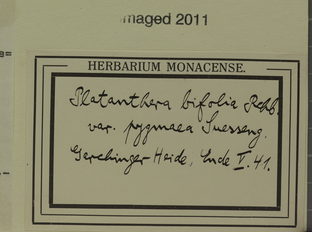 imaged 2011
HERBARIUM MONACENSE.
Platanthera bifolia Rchb.
var. pygmaea Suesseng.
Garchinger Heide, Ende V. 41.